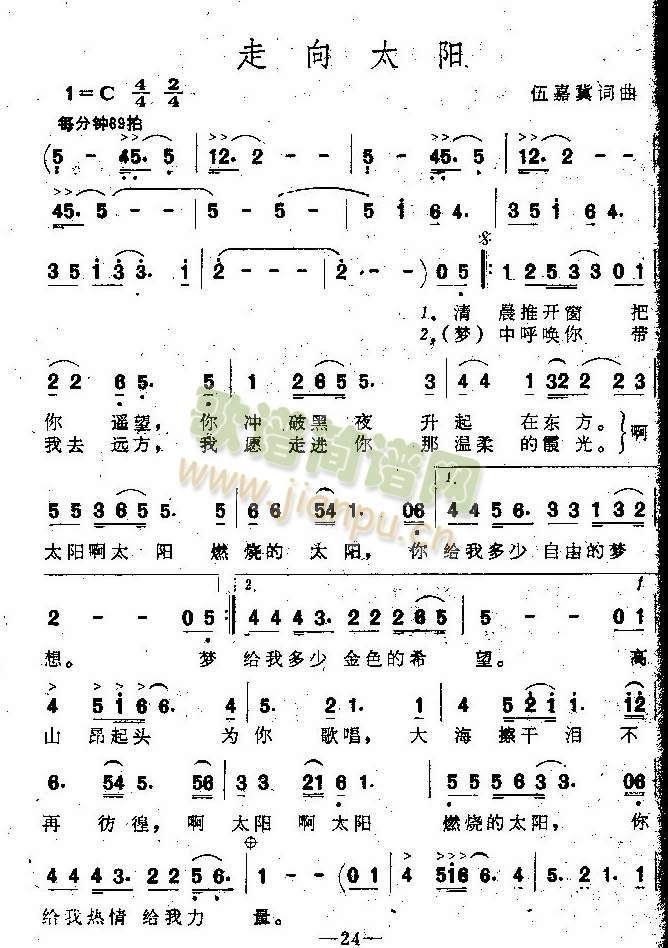 走向太阳
1=C 4/4 2/4 伍嘉冀词曲
每分钟69拍
(5 - 45. 5 | 12. 2 - - | 5 - 45. 5 | 12. 2 - - |
45. 5 - - | 5 - 5 - | 5 5 i 6 4. | 3 5 1 6 4. |
3 5 i 3 3. i | 2 - - - | 2 - - ) 0 5 ‖: 1 2 5 3 3 3 0 1 |
1. 清 晨推开窗 把
2. (梦) 中呼唤你 带
2 2 6 5. 5 | 1 2 6 5 5. 3 | 4 4 1 32 2 2 3 |
你 遥望, 你 冲 破黑 夜 升 起 在 东 方。 啊
我去 远方, 我 愿 走进 你 那 温柔 的 霞光。
1.
5 5 3 6 5 5. 5 | 6 6 54 1. 06 | 4 4 5 6. 3 3 1 3 2 |
太阳啊太 阳 燃 烧的 太 阳, 你 给我多少 自由的梦
2.
2 - - 0 5 :‖ 4 4 4 3. 2 2 2 6 5 | 5 - - 1 |
想。 梦 给我多少 金色的希 望。 高
4 5 i 6 6. 4 | 5. 2 2 1. 4 | 4 5 2 i i. i2 |
山 昂起头 为你 歌唱, 大 海 擦干 泪 不
6. 54 5. 56 | 3 3 21 6 1. | 5 5 5 6 3 3. 06 |
再 彷徨, 啊 太阳 啊 太阳 燃烧的太阳, 你
4 4 4 3. 2 2 5 6. | 1 - - (0 1 | 4 5i6 6. 4 | 5. 2 2 1. 0 1 |
给我热情 给我力 量。
—24—
歌谱简谱网
www.jianpu.cn